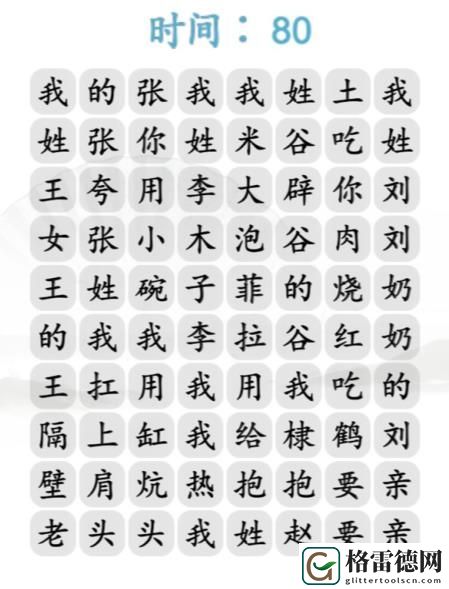 时间：80
我的张我我姓土我
姓张你姓米谷吃姓
王夸用李大辟你刘
女张小木泡谷肉刘
王姓碗子菲的烧奶
的我我李拉谷红奶
王扛用我用我吃的
隔上缸我给棣鹤刘
壁肩炕热抱抱要亲
老头头我姓赵要亲
格雷德网
glittertoolscn.com